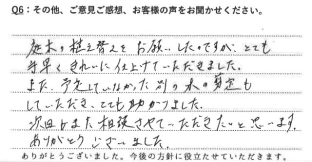 Q6：その他、ご意見ご感想、お客様の声をお聞かせください。
庭木の植え替えをお願いしたのですが、とても
手早くきれいに仕上げていただきました。
また、予定していなかった別の木の剪定も
していただき、とても助かりました。
次回もまた相談させていただきたいと思います。
ありがとうございました。
ありがとうございました。今後の方針に役立たせていただきます。